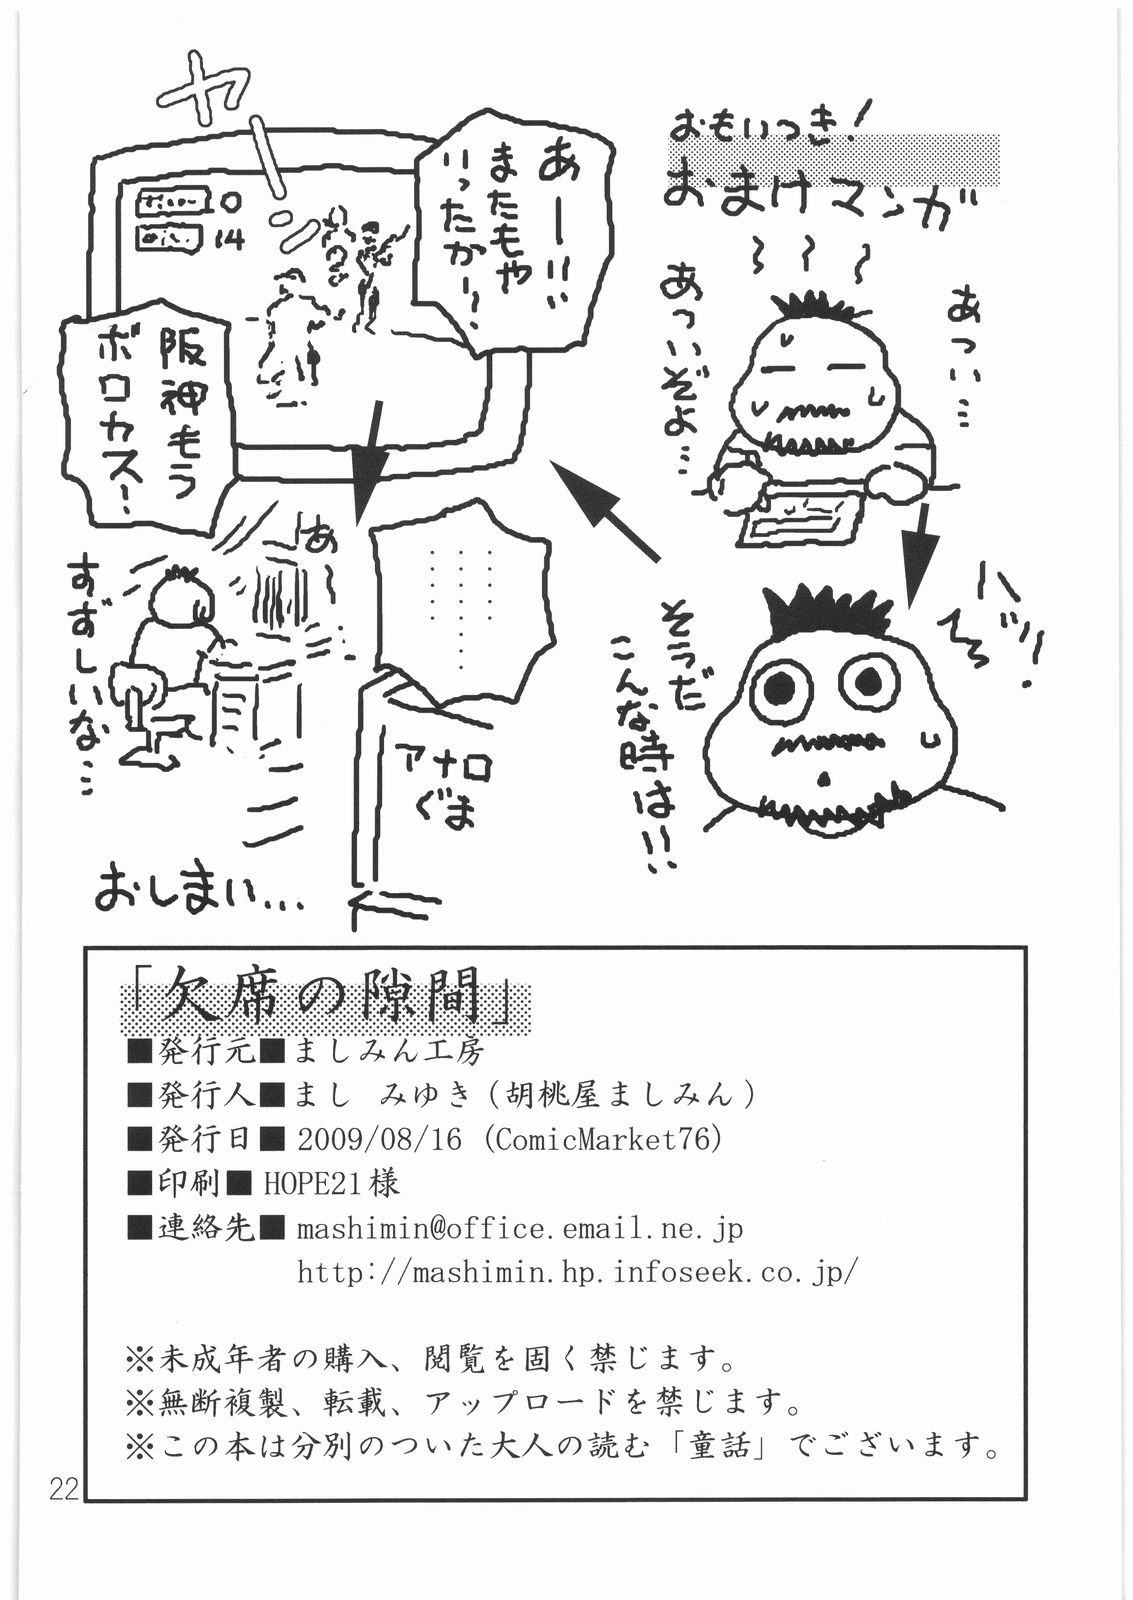 おもいつき!
おまけマンガ
あつい…
あついぞよ…
ハッ!
そうだ
こんな時は!!
ヤーン
0
14
あーーっ
またもや
いったかー!
阪神もう
ボロカスー
あ〜
すずしいな…
アナロ
ぐま
おしまい…
「欠席の隙間」
■発行元■ましみん工房
■発行人■まし みゆき(胡桃屋ましみん)
■発行日■2009/08/16 (ComicMarket76)
■印刷■HOPE21様
■連絡先■mashimin@office.email.ne.jp
http://mashimin.hp.infoseek.co.jp/
※未成年者の購入、閲覧を固く禁じます。
※無断複製、転載、アップロードを禁じます。
※この本は分別のついた大人の読む「童話」でございます。
22